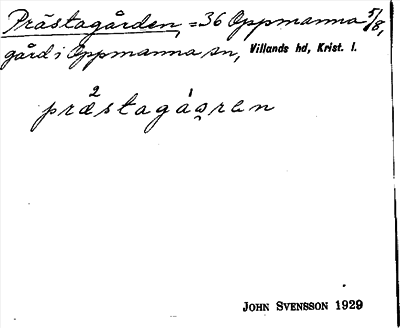 Prästagården, =36 Oppmanna 5/8,
gård i Oppmanna sn, Villands hd, Krist. l.
præ²stagá¹ǫren
JOHN SVENSSON 1929